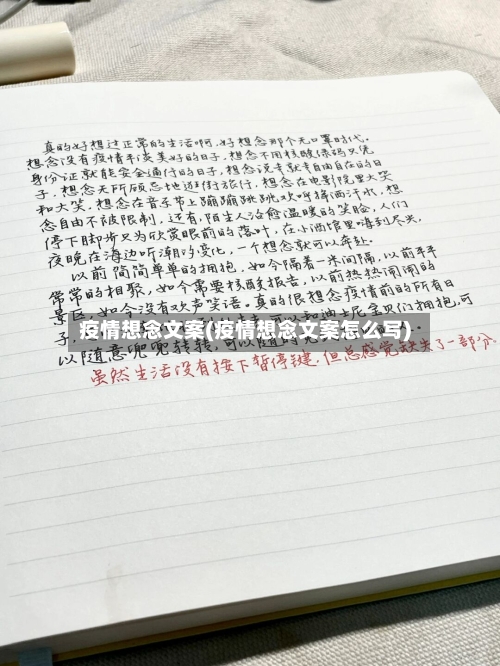 真的好想过正常的生活啊,好想念那个无口罩时代。
想念没有疫情平淡美好的日子,想念不用核酸绿码只凭
身份证就能安全通行的日子,想念说走就走自由自在的日
子,想念无所顾忌地逛街旅行,想念在电影院里大哭
和大笑,想念在音乐节上蹦蹦跳跳欢呼挥洒汗水,想
念自由不被限制,还有,陌生人治愈温暖的笑脸,人们
停下脚步只为欣赏眼前的落叶,在小酒馆里嗨到尽兴,
夜晚在海边听潮汐变化,一个想念就可以奔赴。
以前简简单单的拥抱,如今隔着一米间隔,以前平平
常常的相聚,如今需要核酸报告,以前热热闹闹的
景区,如今没有欢声笑语。真的很想念疫情前的所有日
子,可以和迪士尼金贝们拥抱,可
疫情想念文案(疫情想念文案怎么写)
以随意兜兜转转,可以随时
虽然生活没有按下暂停键,但总感觉缺失了一部分。